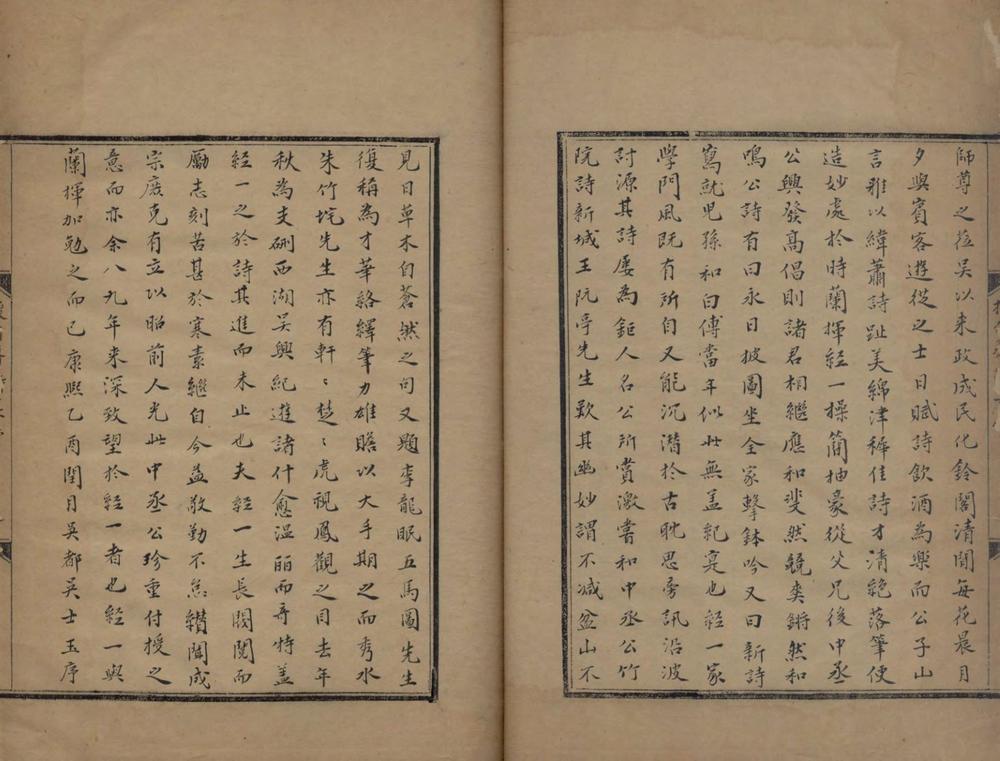 師尊之蒞吳以来政成民化鈴閣清閒每花晨月
夕與賓客遊從之士日賦詩飲酒為樂而公子山
言雅以緯蕭詩趾美綿津稱佳詩才清絕落筆便
造妙處於時蘭揮經一操蕳抽豪從父兄後中丞
公興發髙倡則諸君相繼應和斐然競奏鏘然和
鳴公詩有曰永日披圖坐全家擊鉢吟又曰新詩
寫就兒孫和白傅當年似此無盖紀寔也經一家
學門風既有所自又能沉潛於古耽思旁訊沿波
討源其詩屡為鉅人名公所賞激嘗和中丞公竹
院詩新城王阮亭先生歎其幽妙謂不减盆山不
見日草木自蒼然之句又題李龍眠五馬圖先生
復稱為才華絡繹筆力雄贍以大手期之而秀水
朱竹垞先生亦有軒〻楚〻虎視鳳觀之目去年
秋為支硎西湖吳興紀遊諸什愈温丽而奇特盖
經一之於詩其進而未止也夫經一生長閥閱而
勵志刻苦甚於寒素繼自今益敬勤不怠纘聞成
宗庶克有立以昭前人光此中丞公珍重付授之
意而亦余八九年来深致望於經一者也經一與
蘭揮加勉之而已康熙乙酉閏月吳都吳士玉序